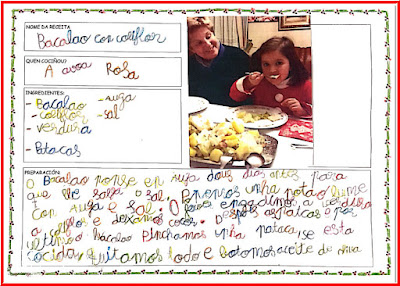 NOME DA RECEITA
Bacalao con coliflor
QUEN COCIÑOU?
A avoa Rosa
INGREDIENTES:
- Bacalao - auga
- coliflor - sal
- verdura
- Patacas
PREPARACIÓN:
O Bacalao ponse en auga dous días antes para
que lle salga o sal. Poñemos unha pota o lume
con auga e sal. O ferver engadimos a verdura
a coliflor e deixamos cocer. Despois as patacas e por
último o bacalao. Pinchamos unha pataca, se esta
cocida, quitamos todo e botamos aceite de oliva